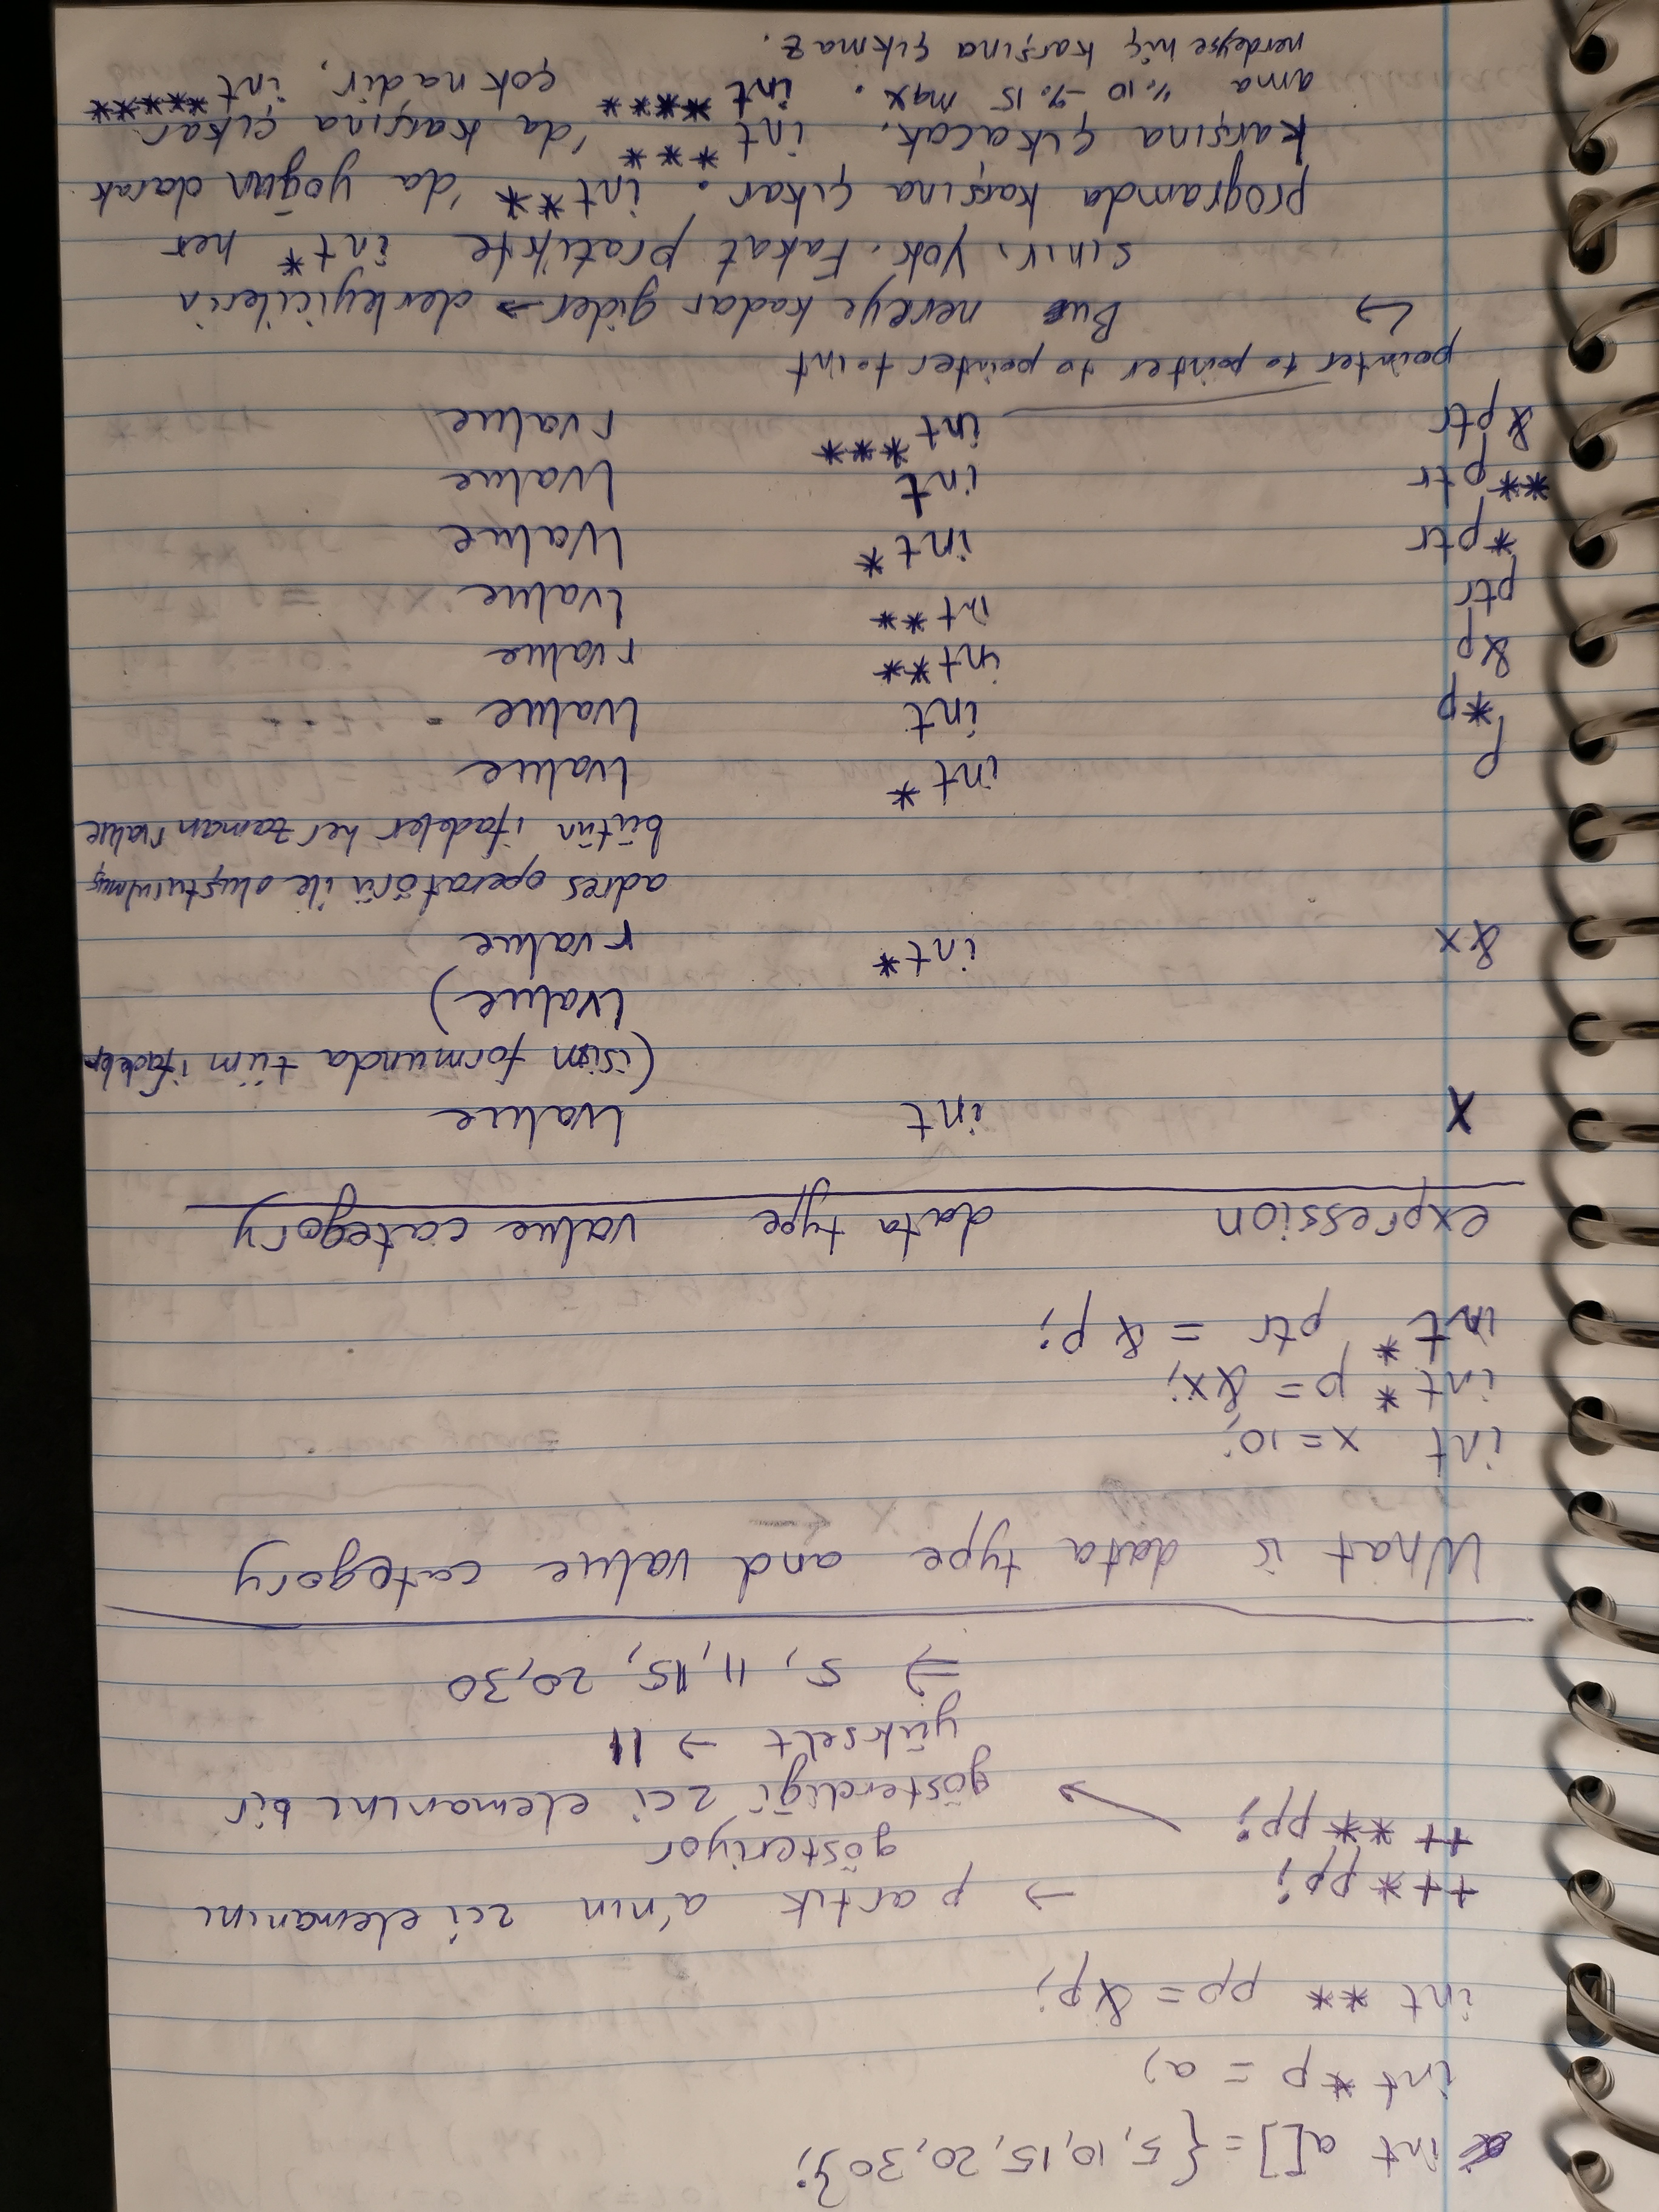 int a[] = { 5, 10, 15, 20, 30 };
int *p = a;
int ** pp = &p;
++*pp; → p artık a'nın 2ci elemanını
gösteriyor
++**pp; → gösterdiği 2ci elemanını bir
yükselt → 11
⇒ 5, 11, 15, 20, 30
What is data type and value category
int x = 10;
int* p = &x;
int* ptr = &p;
expression data type value category
x int lvalue
(isim formunda tüm ifadeler
lvalue)
&x int* rvalue
adres operatörü ile oluşturulmuş
bütün ifadeler her zaman rvalue
p int* lvalue
*p int lvalue
&p int** rvalue
ptr int** lvalue
*ptr int* lvalue
**ptr int lvalue
&ptr int*** rvalue
pointer to pointer to pointer to int
↳ Bu nereye kadar gider → derleyicilerin
sınırı yok. Fakat pratikte int* her
programda karşına çıkar. int** 'da yoğun olarak
karşına çıkacak. int*** 'da karşına çıkar
ama %10 - %15 max. int**** çok nadir, int*****
nerdeyse hiç karşına çıkmaz.